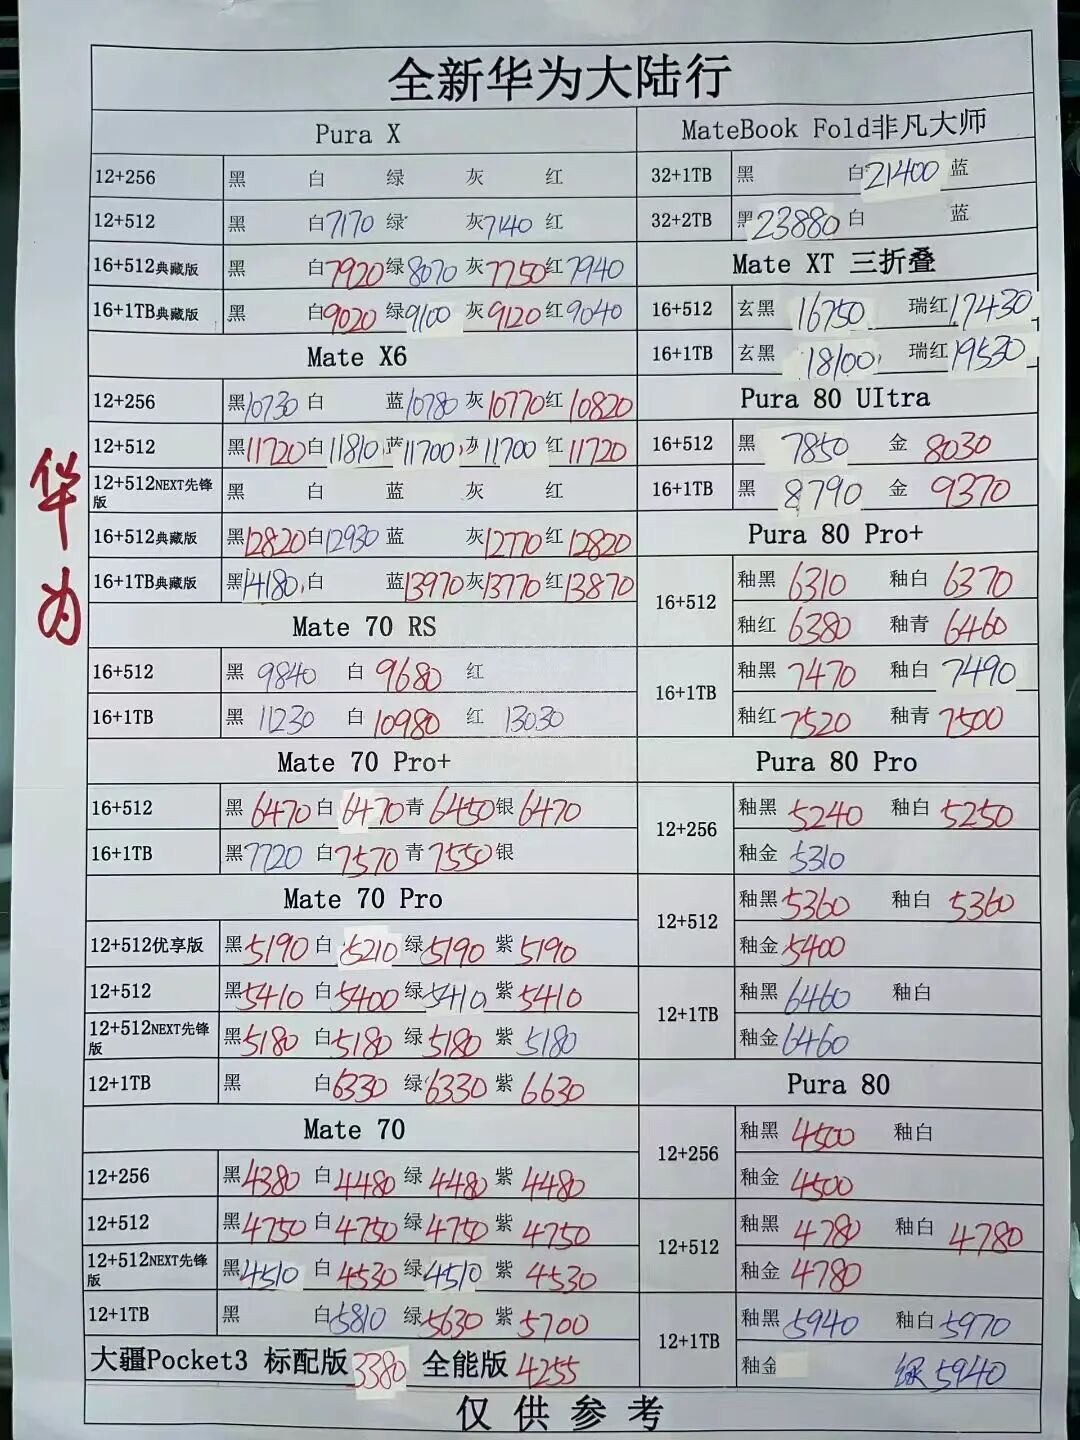 全新华为大陆行
华为
Pura X
12+256 黑 白 绿 灰 红
12+512 黑 白7170 绿 灰7140 红
16+512典藏版 黑 白7920 绿8070 灰7750 红7940
16+1TB典藏版 黑 白9020 绿9100 灰9120 红9040
Mate X6
12+256 黑10730 白 蓝10780 灰10770 红10820
12+512 黑11720 白11810 蓝11700 灰11700 红11720
12+512NEXT先锋版 黑 白 蓝 灰 红
16+512典藏版 黑12820 白12930 蓝 灰12770 红12820
16+1TB典藏版 黑14180 白 蓝13970 灰13770 红13870
Mate 70 RS
16+512 黑 9840 白 9680 红
16+1TB 黑 11230 白 10980 红 13030
Mate 70 Pro+
16+512 黑6470 白6470 青6450 银6470
16+1TB 黑7720 白7570 青7550 银
Mate 70 Pro
12+512优享版 黑5190 白5210 绿5190 紫5190
12+512 黑5410 白5400 绿5410 紫5410
12+512NEXT先锋版 黑5180 白5180 绿5180 紫5180
12+1TB 黑 白6330 绿6330 紫6630
Mate 70
12+256 黑4380 白4480 绿4480 紫4480
12+512 黑4750 白4750 绿4750 紫4750
12+512NEXT先锋版 黑4510 白4530 绿4510 紫4530
12+1TB 黑 白5810 绿5630 紫5700
大疆Pocket3 标配版3380 全能版4255
MateBook Fold非凡大师
32+1TB 黑 白21400 蓝
32+2TB 黑23880 白 蓝
Mate XT 三折叠
16+512 玄黑 16750 瑞红17430
16+1TB 玄黑 18100 瑞红19530
Pura 80 UItra
16+512 黑 7850 金 8030
16+1TB 黑 8790 金 9370
Pura 80 Pro+
16+512 釉黑 6310 釉白 6370
釉红 6380 釉青 6460
16+1TB 釉黑 7470 釉白 7490
釉红 7520 釉青 7500
Pura 80 Pro
12+256 釉黑 5240 釉白 5250
釉金 5310
12+512 釉黑5360 釉白 5360
釉金5400
12+1TB 釉黑6460 釉白
釉金6460
Pura 80
12+256 釉黑 4500 釉白
釉金 4500
12+512 釉黑 4780 釉白 4780
釉金 4780
12+1TB 釉黑5940 釉白5970
釉金 绿5940
仅供参考